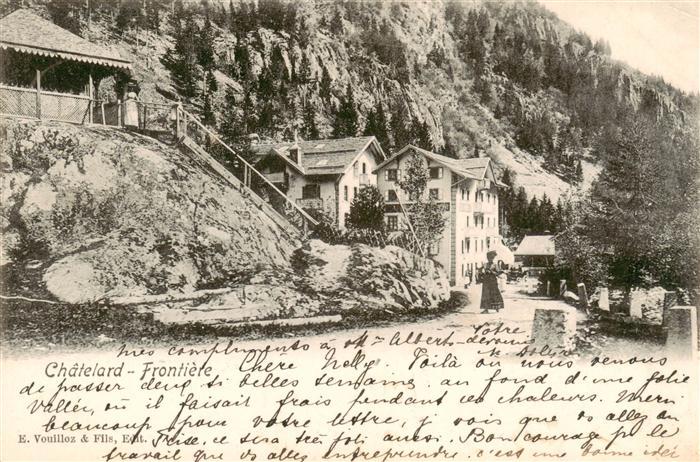 mes compliments à Mr Albert-
Votre
dévouée
Châtelard - Frontière
Chère Nelly. Voilà où nous venons
de passer deux si belles semaines au fond d'une jolie
Vallée, où il faisait frais pendant ces chaleurs. Merci
beaucoup pour votre lettre, j vois que vs allez en
E. Vouilloz & Fils, Edit.
Suisse, ce sera très joli aussi. Bon courage pr le
travail que vs allez entreprendre. c'est une bonne idée